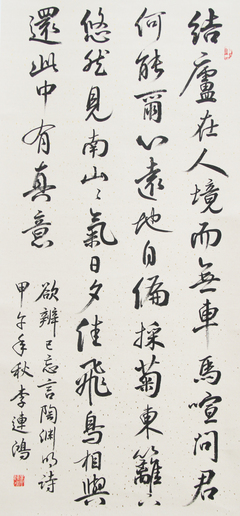 結廬在人境而無車馬喧問君
何能爾心遠地自偏採菊東籬下
悠然見南山山氣日夕佳飛鳥相與
還此中有真意
欲辨已忘言陶淵明詩
甲午年秋李連鴻